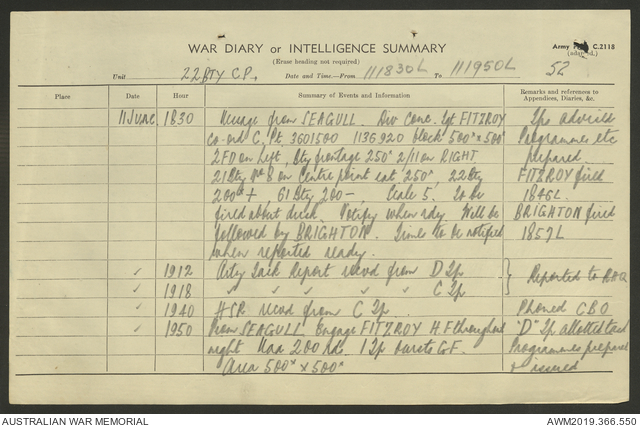 WAR DIARY or INTELLIGENCE SUMMARY
(Erase heading not required)
Army C.2118
(adapted.)
Unit 22 BTY C.P. Date and Time—From 111830L To 111950L 52
Place Date Hour Summary of Events and Information Remarks and references to Appendices, Diaries, &c.
11 June 1830 Message from SEAGULL. Div Conc. Tgt FITZROY
co-ord C. Pt 3601500 1136920 block 500x x 500x
2 FD on Left, Bty frontage 250x 2/11 on RIGHT
21 Bty on Centre point lat 250x, 22 Bty
200x +, 61 Bty 200 -. Scale 5. To be
fired about dusk. Notify when rdy. Will be
followed by BRIGHTON. Times to be notified
when reported ready.
Tps advised
Programmes etc
prepared.
FITZROY fired
1846L.
BRIGHTON fired
1859L
✓ 1912 Arty Task Report recvd from D Tp
✓ 1918 " " " " " C Tp
Reported to RHQ
✓ 1940 HSR recvd from C Tp. Phoned CBO
✓ 1950 From SEAGULL Engage FITZROY HF throughout
night Max 200 rds. 1 Tp bursts G.F.
Area 500x x 500x
"D" Tp allotted task
Programmes prepared
& issued
AUSTRALIAN WAR MEMORIAL
AWM2019.366.550